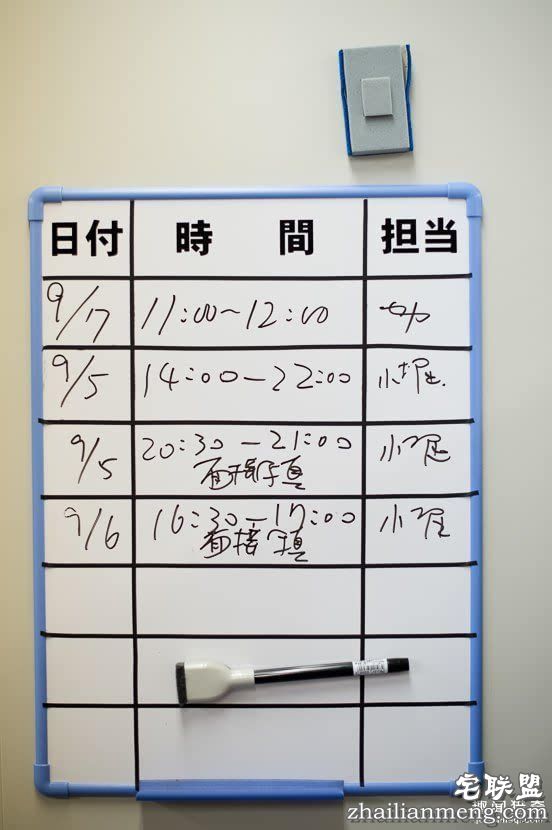 日付 時間 担当
9/17 11:00~12:00
9/5 14:00-22:00 小堀
9/5 20:30-21:00 小堀
面接写真
9/6 16:30-17:00 小堀
面接写真
宅联盟
zhailianmeng.com